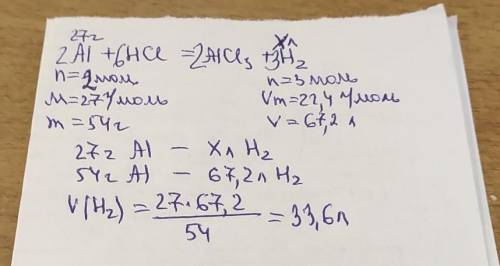 27г хл
2Al + 6HCl = 2AlCl3 + 3H2
n = 2 моль n = 3 моль
M = 27 г/моль Vm = 22,4 л/моль
m = 54 г V = 67,2 л
27 г Al – Xл H2
54 г Al – 67,2 л H2
V(H2) = 27·67,2 / 54 = 33,6 л